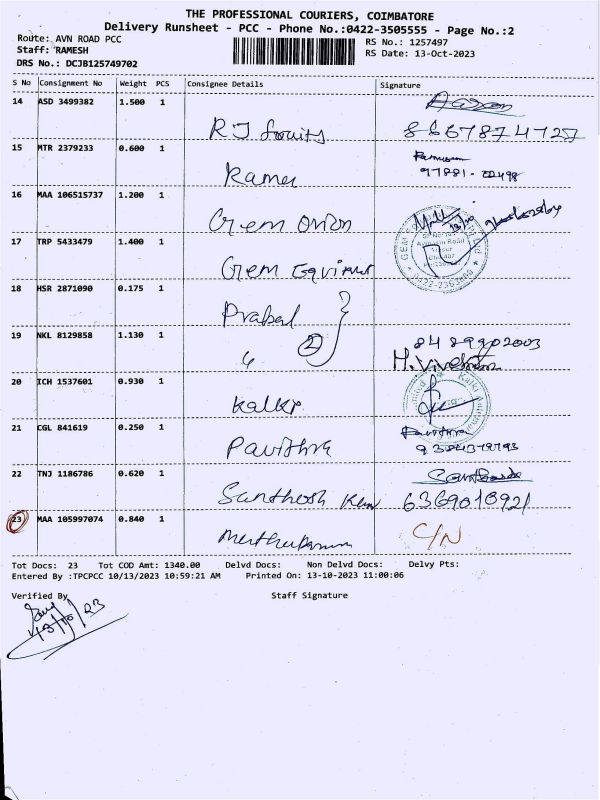 THE PROFESSIONAL COURIERS, COIMBATORE
Delivery Runsheet - PCC - Phone No.:0422-3505555 - Page No.:2
Route: AVN ROAD PCC
RS No.: 1257497
Staff: RAMESH
RS Date: 13-Oct-2023
DRS No.: DCJB125749702
S No Consignment No Weight PCS Consignee Details Signature
14 ASD 3499382 1.500 1
RJ fruits 8667874727
15 MTR 2379233 0.600 1
97881-22498
16 MAA 106515737 1.200 1
Gem Onion
17 TRP 5433479 1.400 1
Gem
18 HSR 2871090 0.175 1
Prabal
19 NKL 8129858 1.130 1
2 8489902003
20 ICH 1537601 0.930 1
Kalki
21 CGL 841619 0.250 1
Pavithra Pavithra
9384379793
22 TNJ 1186786 0.620 1
Santhosh 6369018921
23 MAA 105997074 0.840 1
C/N
Tot Docs: 23 Tot COD Amt: 1340.00 Delvd Docs: Non Delvd Docs: Delvy Pts:
Entered By :TPCPCC 10/13/2023 10:59:21 AM Printed On: 13-10-2023 11:00:06
Verified By Staff Signature
13/10/23